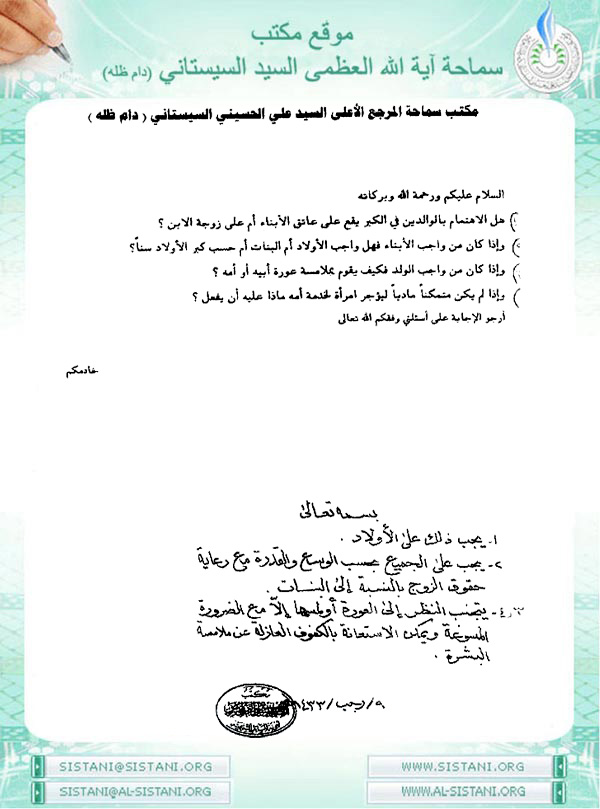 موقع مكتب
سماحة آية الله العظمى السيد السيستاني (دام ظله)
مكتب سماحة المرجع الأعلى السيد علي الحسيني السيستاني ( دام ظله )
السلام عليكم ورحمة الله وبركاته
١) هل الاهتمام بالوالدين في الكبر يقع على عاتق الأبناء أم على زوجة الابن ؟
) وإذا كان من واجب الأبناء فهل واجب الأولاد أم البنات أم حسب كبر الأولاد سناً؟
) وإذا كان من واجب الولد فكيف يقوم بملامسة عورة أبيه أو أمه ؟
) وإذا لم يكن متمكناً مادياً ليؤجر امرأة لخدمة أمه ماذا عليه أن يفعل ؟
أرجو الإجابة على أسئلتي وفقكم الله تعالى
خادمكم
بسمه تعالى
١- يجب ذلك على الأولاد .
٢- يجب على الجميع بحسب الوسع والقدرة مع رعاية
حقوق الزوج بالنسبة إلى البنات .
٣و٤- يتجنب النظر إلى العورة أو لمسها إلاّ مع الضرورة
المسوغة ويمكن الاستعانة بالكفوف العازلة عن ملامسة
البشرة .
٩/رجب/١٤٣٣
مكتب
SISTANI@SISTANI.ORG
WWW.SISTANI.ORG
SISTANI@AL-SISTANI.ORG
WWW.AL-SISTANI.ORG